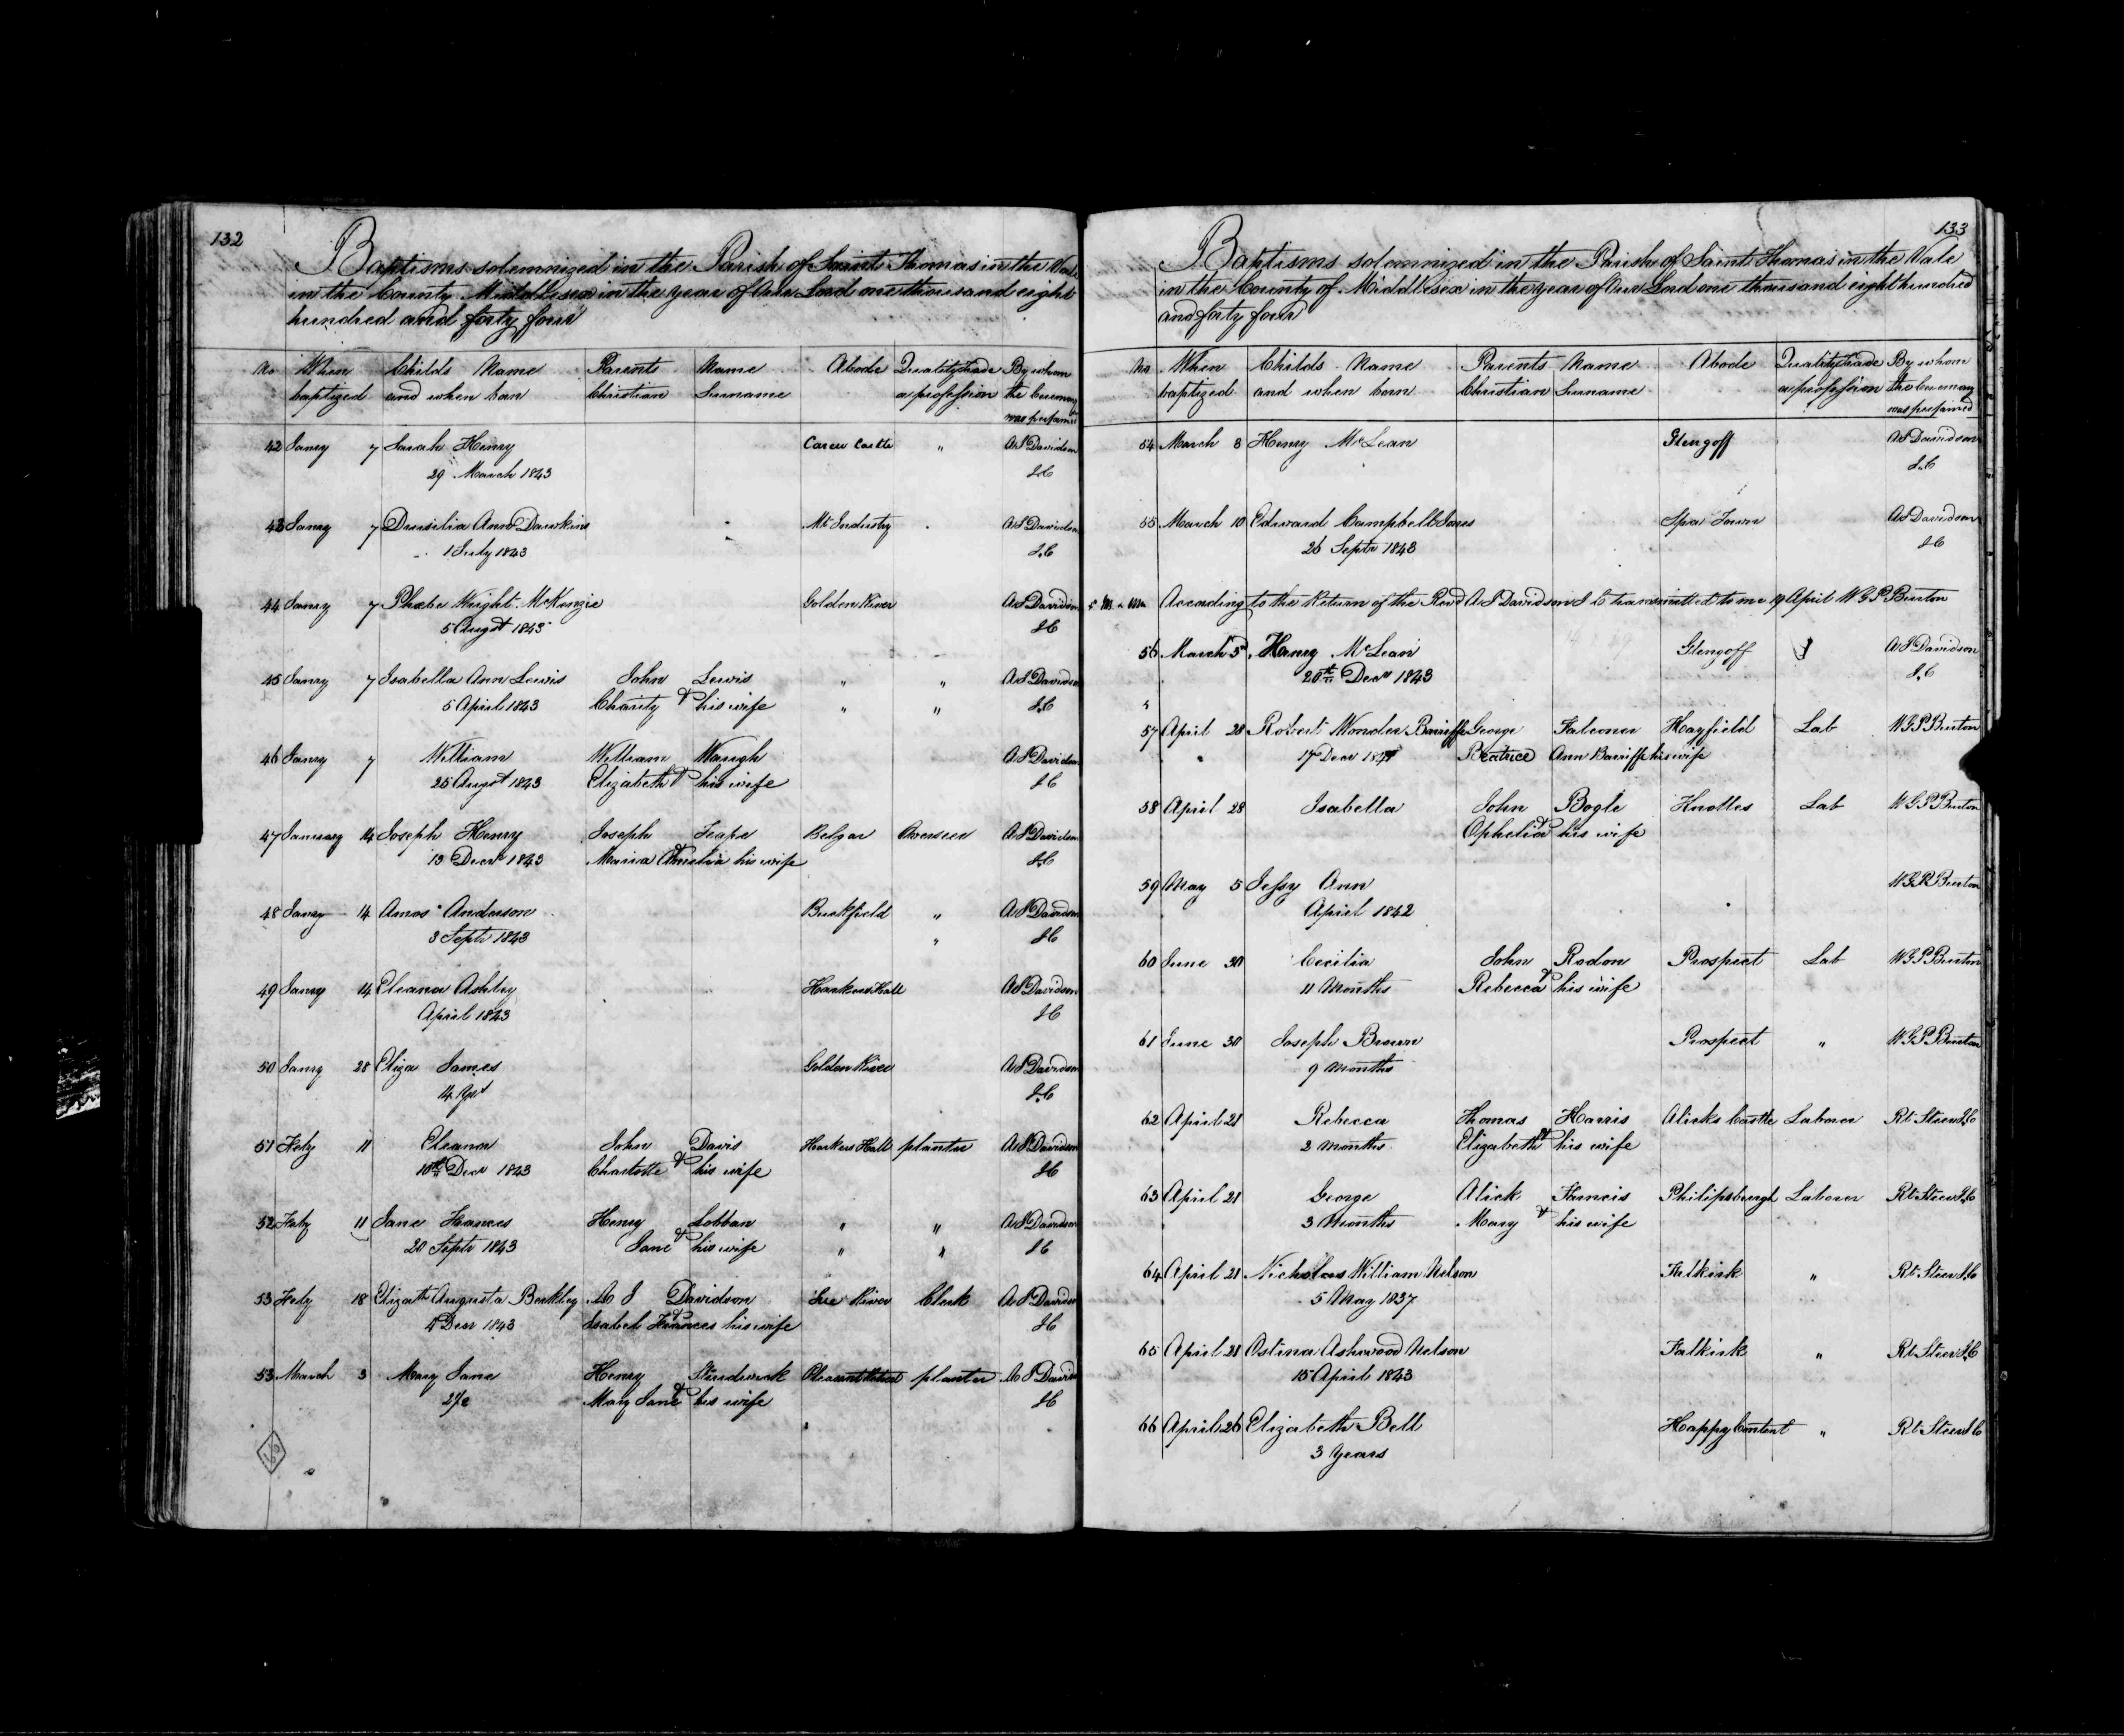 132
Baptisms solemnized in the Parish of Saint Thomas in the Vale
in the County Middlesex in the year of Our Lord one thousand eight
hundred and forty four
No When Childs Name Parents Name Abode Quality trade By whom
baptized and when born Christian Surname or profession the ceremony
was performed
42 Janry 7 Sarah Henry Carew Castle " A S Davidson
29 March 1843 I.C
43 Janry 7 Drusilia Ann Dawkins Mt Industry A S Davidson
1 July 1843 I.C
44 Janry 7 Phœbe Wright McKenzie Golden River A S Davidson
5 Augst 1843 I C
45 Janry 7 Isabella Ann Lewis John Lewis " " A S Davidson
5 April 1843 Charity & his wife " " I.C
46 Janry 7 William William Waugh A S Davidson
25 Augst 1843 Elizabeth & his wife I C
47 January 14 Joseph Henry Joseph Overseer A S Davidson
13 Decr 1843 Maria Amelia & his wife I.C
48 Janry 14 Amos Anderson Buckfield " A S Davidson
3 Septr 1843 " I C
49 Janry 14 Eleanor Ashley Harkers Hall A S Davidson
April 1843 I C
50 Janry 28 Eliza James Golden River A S Davidson
14 I.C
51 Feby 11 Eleanor John Davis Harkers Hall planter A S Davidson
10th Decr 1843 Charlotte & his wife I C
52 Feby 11 Jane Frances Henry Lobban " " A S Davidson
20 Septr 1843 Jane & his wife " " I C
53 Feby 18 Elizath Augusta Berkley A S Davidson River Clerk A S Davidson
4 Decr 1843 Isabel Frances & his wife I C
53 March 3 Mary Jane Henry Studwick planter A S Davidson
Mary Jane & his wife I C
133
Baptisms solemnized in the Parish of Saint Thomas in the Vale
in the County of Middlesex in the year of Our Lord one thousand eight hundred
and forty four
No When Childs Name Parents Name Abode Quality trade By whom
baptized and when born Christian Surname or profession the ceremony
was performed
54 March 3 Henry McLean Glengoff A S Davidson
I.C
55 March 10 Edward Campbell Jones Spa Town A S Davidson
26 Septr 1843 I C
According to the Return of the Revd A S Davidson I C transmitted to me 19 April W G P Burton
56 March 3d Henry McLean Glengoff A S Davidson
20th Decr 1843 I.C
57 April 28 Robert Wonder Barriffe George Falconer Hayfield Lab W G P Burton
17 Decr Beatrice Ann Barriffe his wife
58 April 28 Isabella John Bogle Knolles Lab W G P Burton
Ophelia & his wife
59 May 5 Jessy Ann W G P Burton
April 1842
60 June 30 Cecilia John Rodon Prospect Lab W G P Burton
11 Months Rebecca & his wife
61 June 30 Joseph Brown Prospect " W G P Burton
9 Months
62 April 21 Rebecca Thomas Harris Alicks Castle Laborer Rt Steer I.C
2 Months Elizabeth & his wife
63 April 21 George Alick Francis Philipsburgh Laborer Rt Steer I.C
3 Months Mary & his wife
64 April 21 Nicholas William Nelson Falkirk " Rt Steer I.C
5 May 1837
65 April 21 Ostina Ashwood Nelson Falkirk " Rt Steer I.C
15 April 1843
66 April 26 Elizabeth Bell Happy Content " Rt Steer I C
3 Years